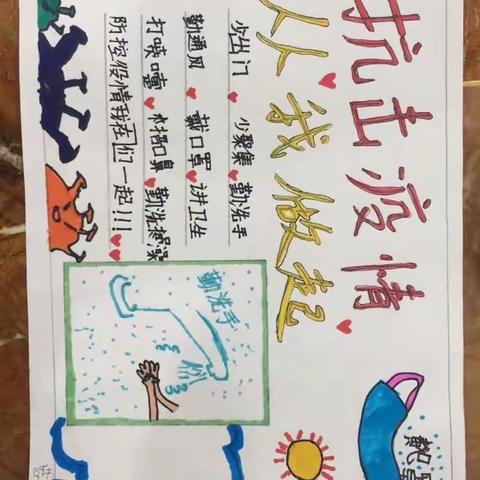 抗击疫情
从我做起
少出门 少聚集 勤洗手
勤通风 戴口罩 讲卫生
打喷嚏 捂口鼻 勤洗澡
防控役情我在们一起!!!
勤洗手
戴